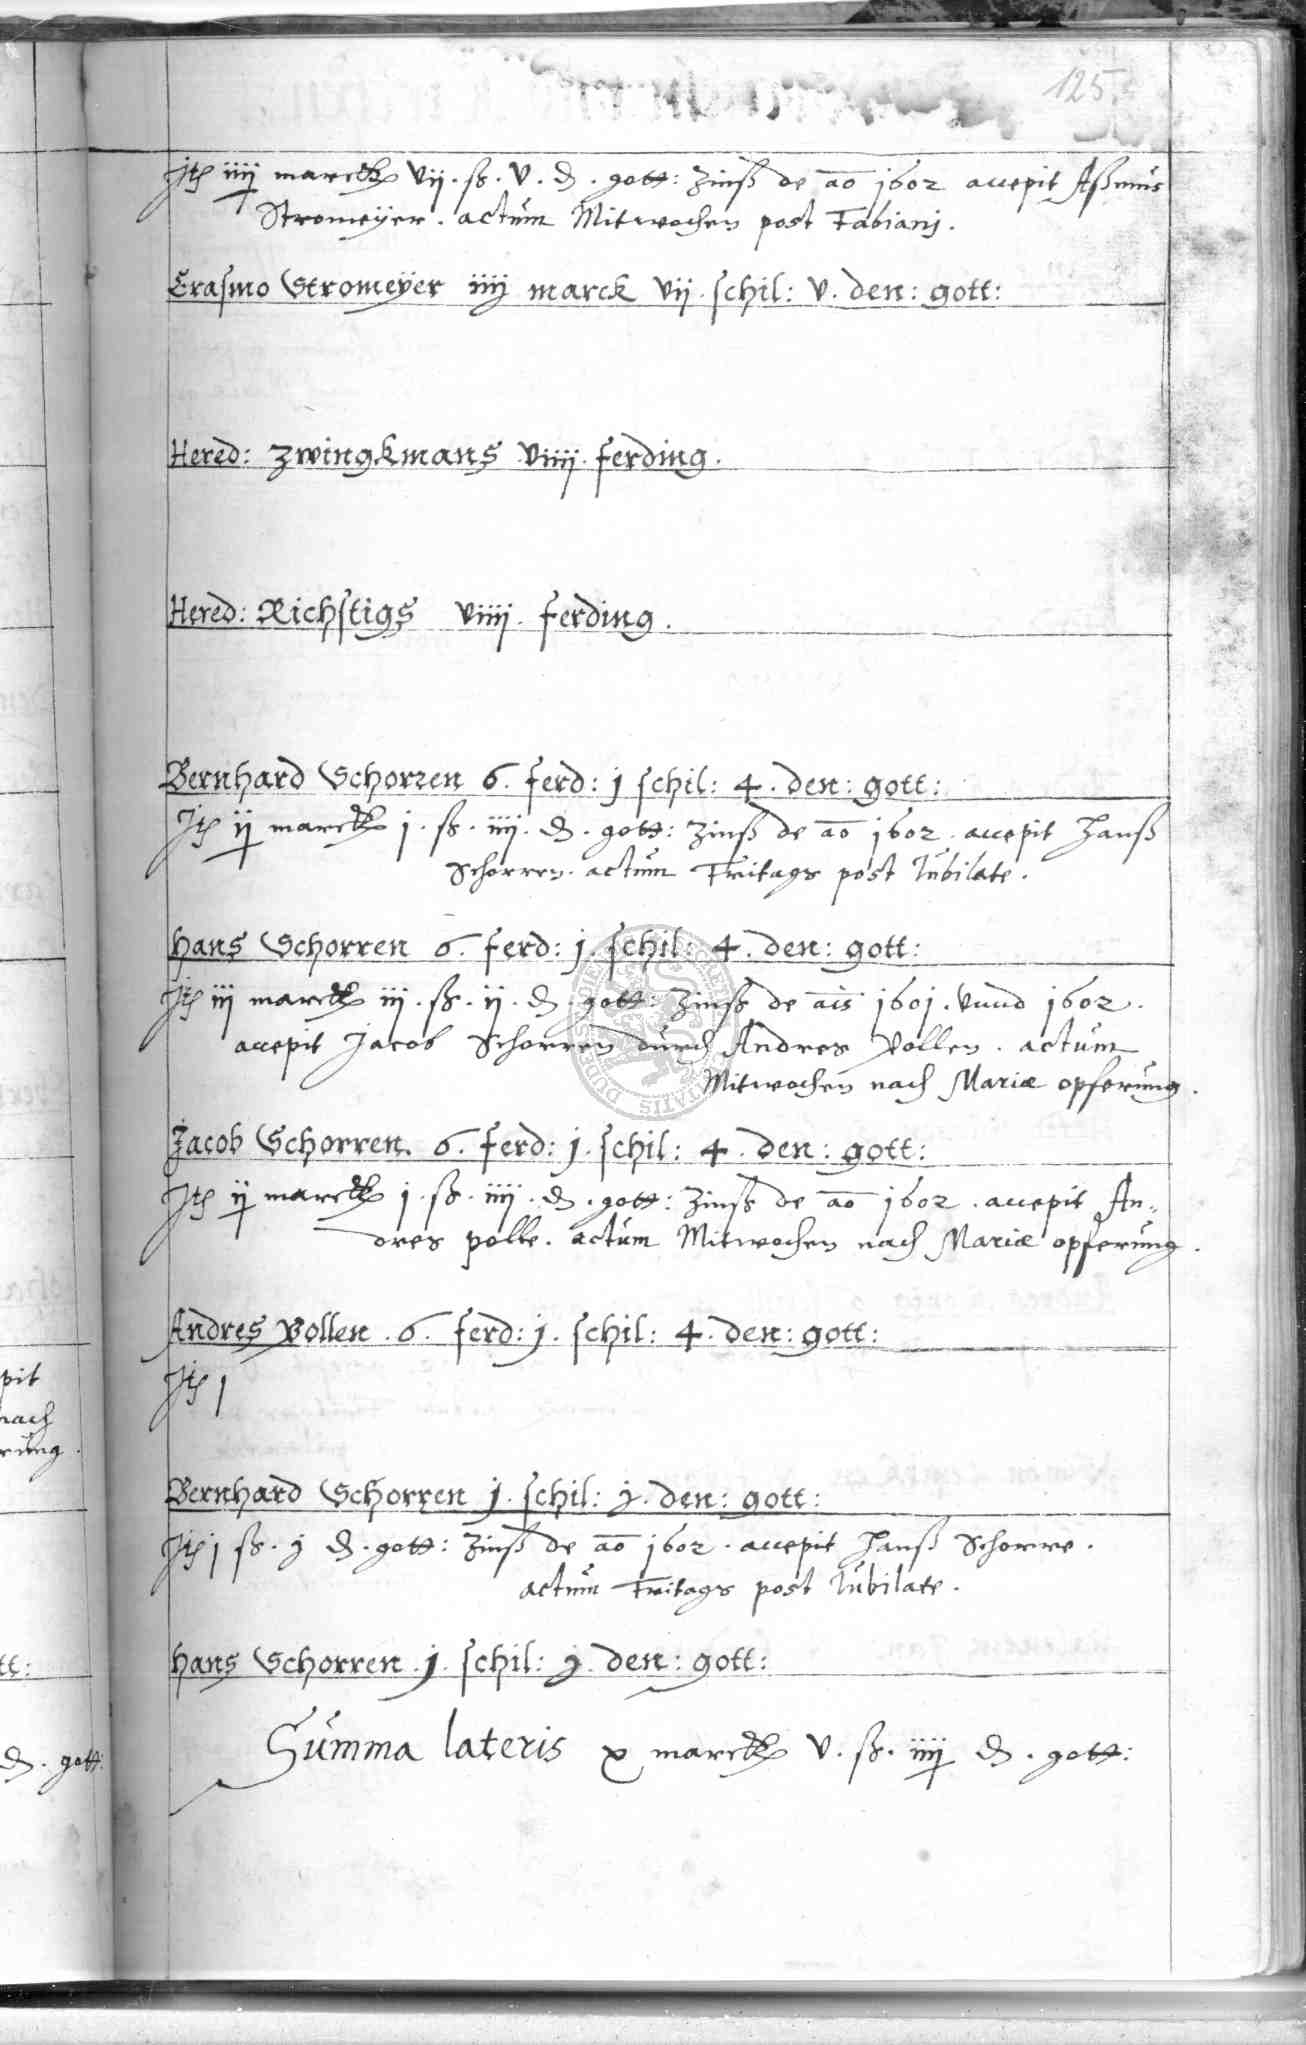 125
Jtē iiij marck vij . ß . v . d . gott: Zinß de ao 1602 accepit Aßmus
Stromeÿer . actum Mitwochen post Fabianj .
Erasmo Stromeÿer iiij marck vij . schil: v . den: gott:
Hered: Zwingkmans viiij . ferding .
Hered: Richstigs viiij . ferding .
Bernhard Schorren 6 . ferd: j schil: 4 . den: gott:
Jtē ij marck j . ß . iiij . d . gott: Zinß de ao 1602 . accepit Hanß
Schorren . actum Fritags post Jubilate .
Hans Schorren 6 . ferd: j . schil: 4 . den: gott:
Jtē iij marck iij . ß . ij . d . gott: Zinß de ais 1601 . vnnd 1602 .
accepit Jacob Schorren durch Andres Pollen . actum
Mitwochen nach Mariæ opferung .
Jacob Schorren . 6 . ferd: j . schil: 4 . den: gott:
Jtē ij marck j . ß . iiij . d . gott: Zinß de ao 1602 . accepit An„
dres polle . actum Mitwochen nach Mariæ opferung .
Andres Pollen . 6 . ferd: j . schil: 4 . den: gott:
Jtē j
Bernhard Schorren j . schil: j . den: gott:
Jtē j ß . j d . gott: Zinß de ao 1602 . accepit Hanß Schorre .
actum Fritags post Jubilate .
Hans Schorren . j . schil: j . den: gott:
Summa lateris x marck v . ß . iiij d . gott:
pit
nach
rung .
tt:
d . gott: